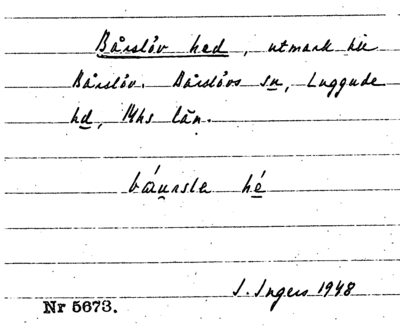 Bårslöv hed, utmark till
Bårslöv. Bårslövs sn, Luggude
hd, Mhs län.
báu̯rsle hé
I. Ingers 1948
Nr 5673.